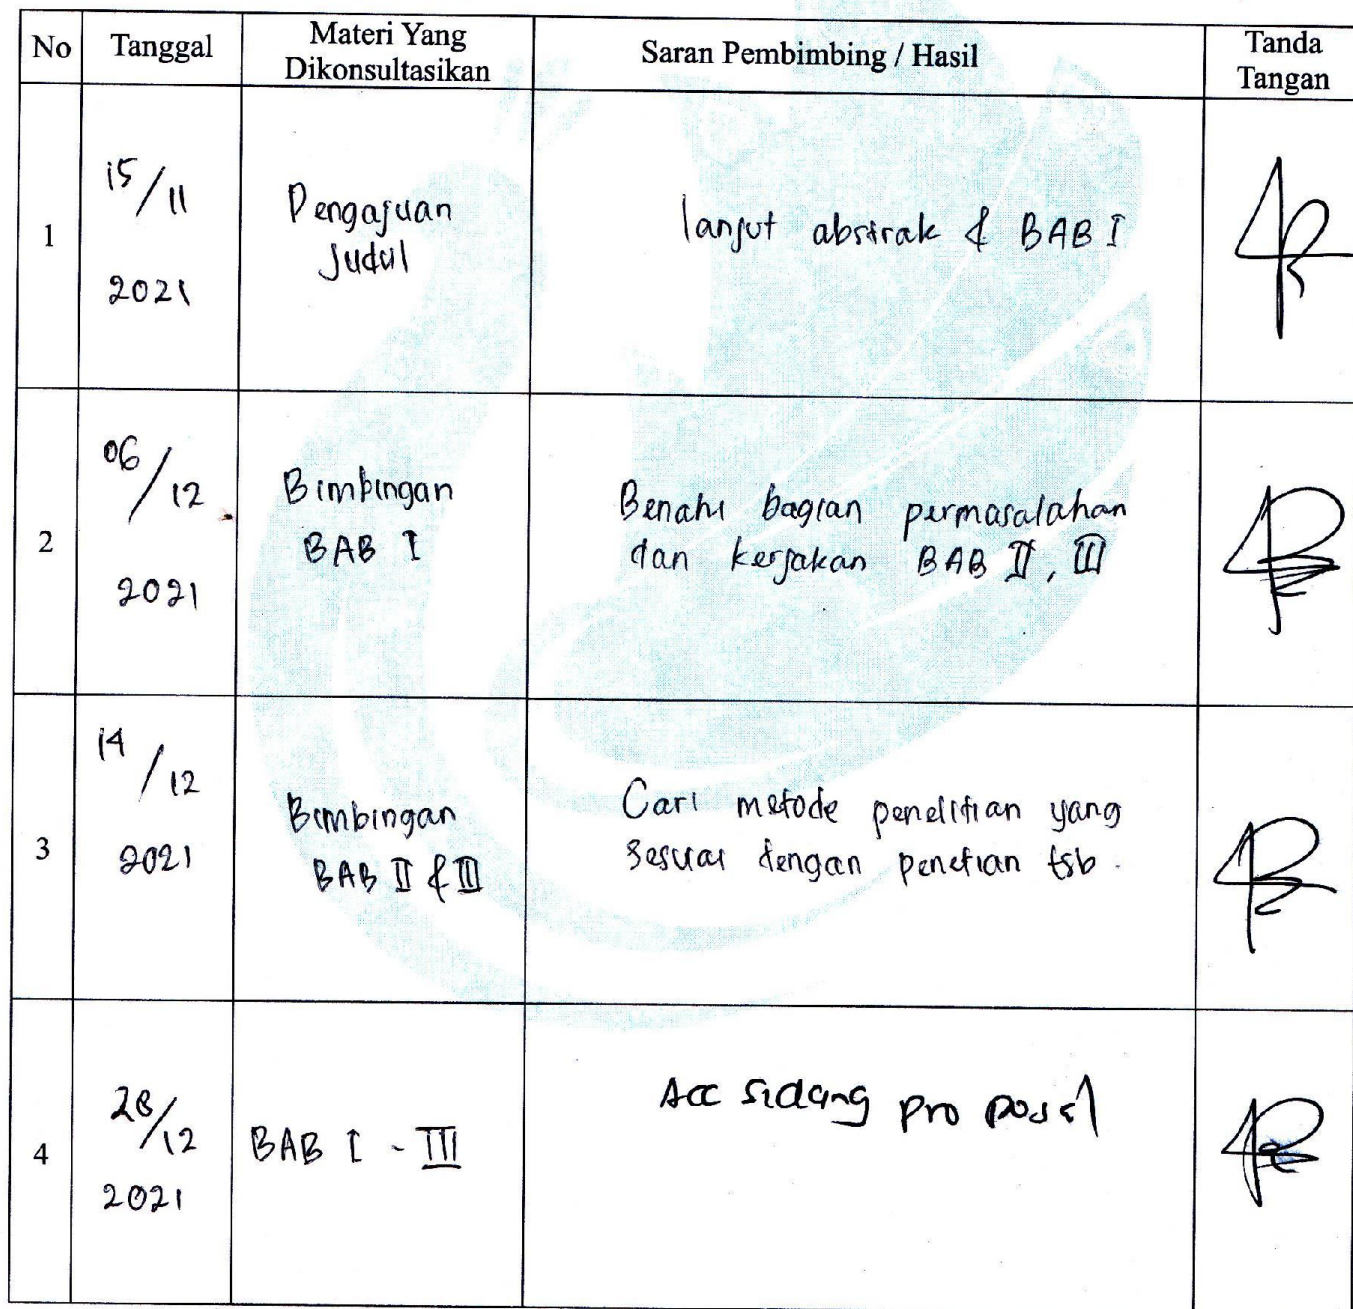 No Tanggal Materi Yang Dikonsultasikan Saran Pembimbing / Hasil Tanda Tangan
1
15/11
2021
Pengajuan
Judul
lanjut abstrak & BAB I
2
06/12
2021
Bimbingan
BAB I
Benahi bagian permasalahan
dan kerjakan BAB II, III
3
14/12
2021
Bimbingan
BAB II & III
Cari metode penelitian yang
sesuai dengan penetian tsb.
4
28/12
2021
BAB I - III
Acc Sidang proposal